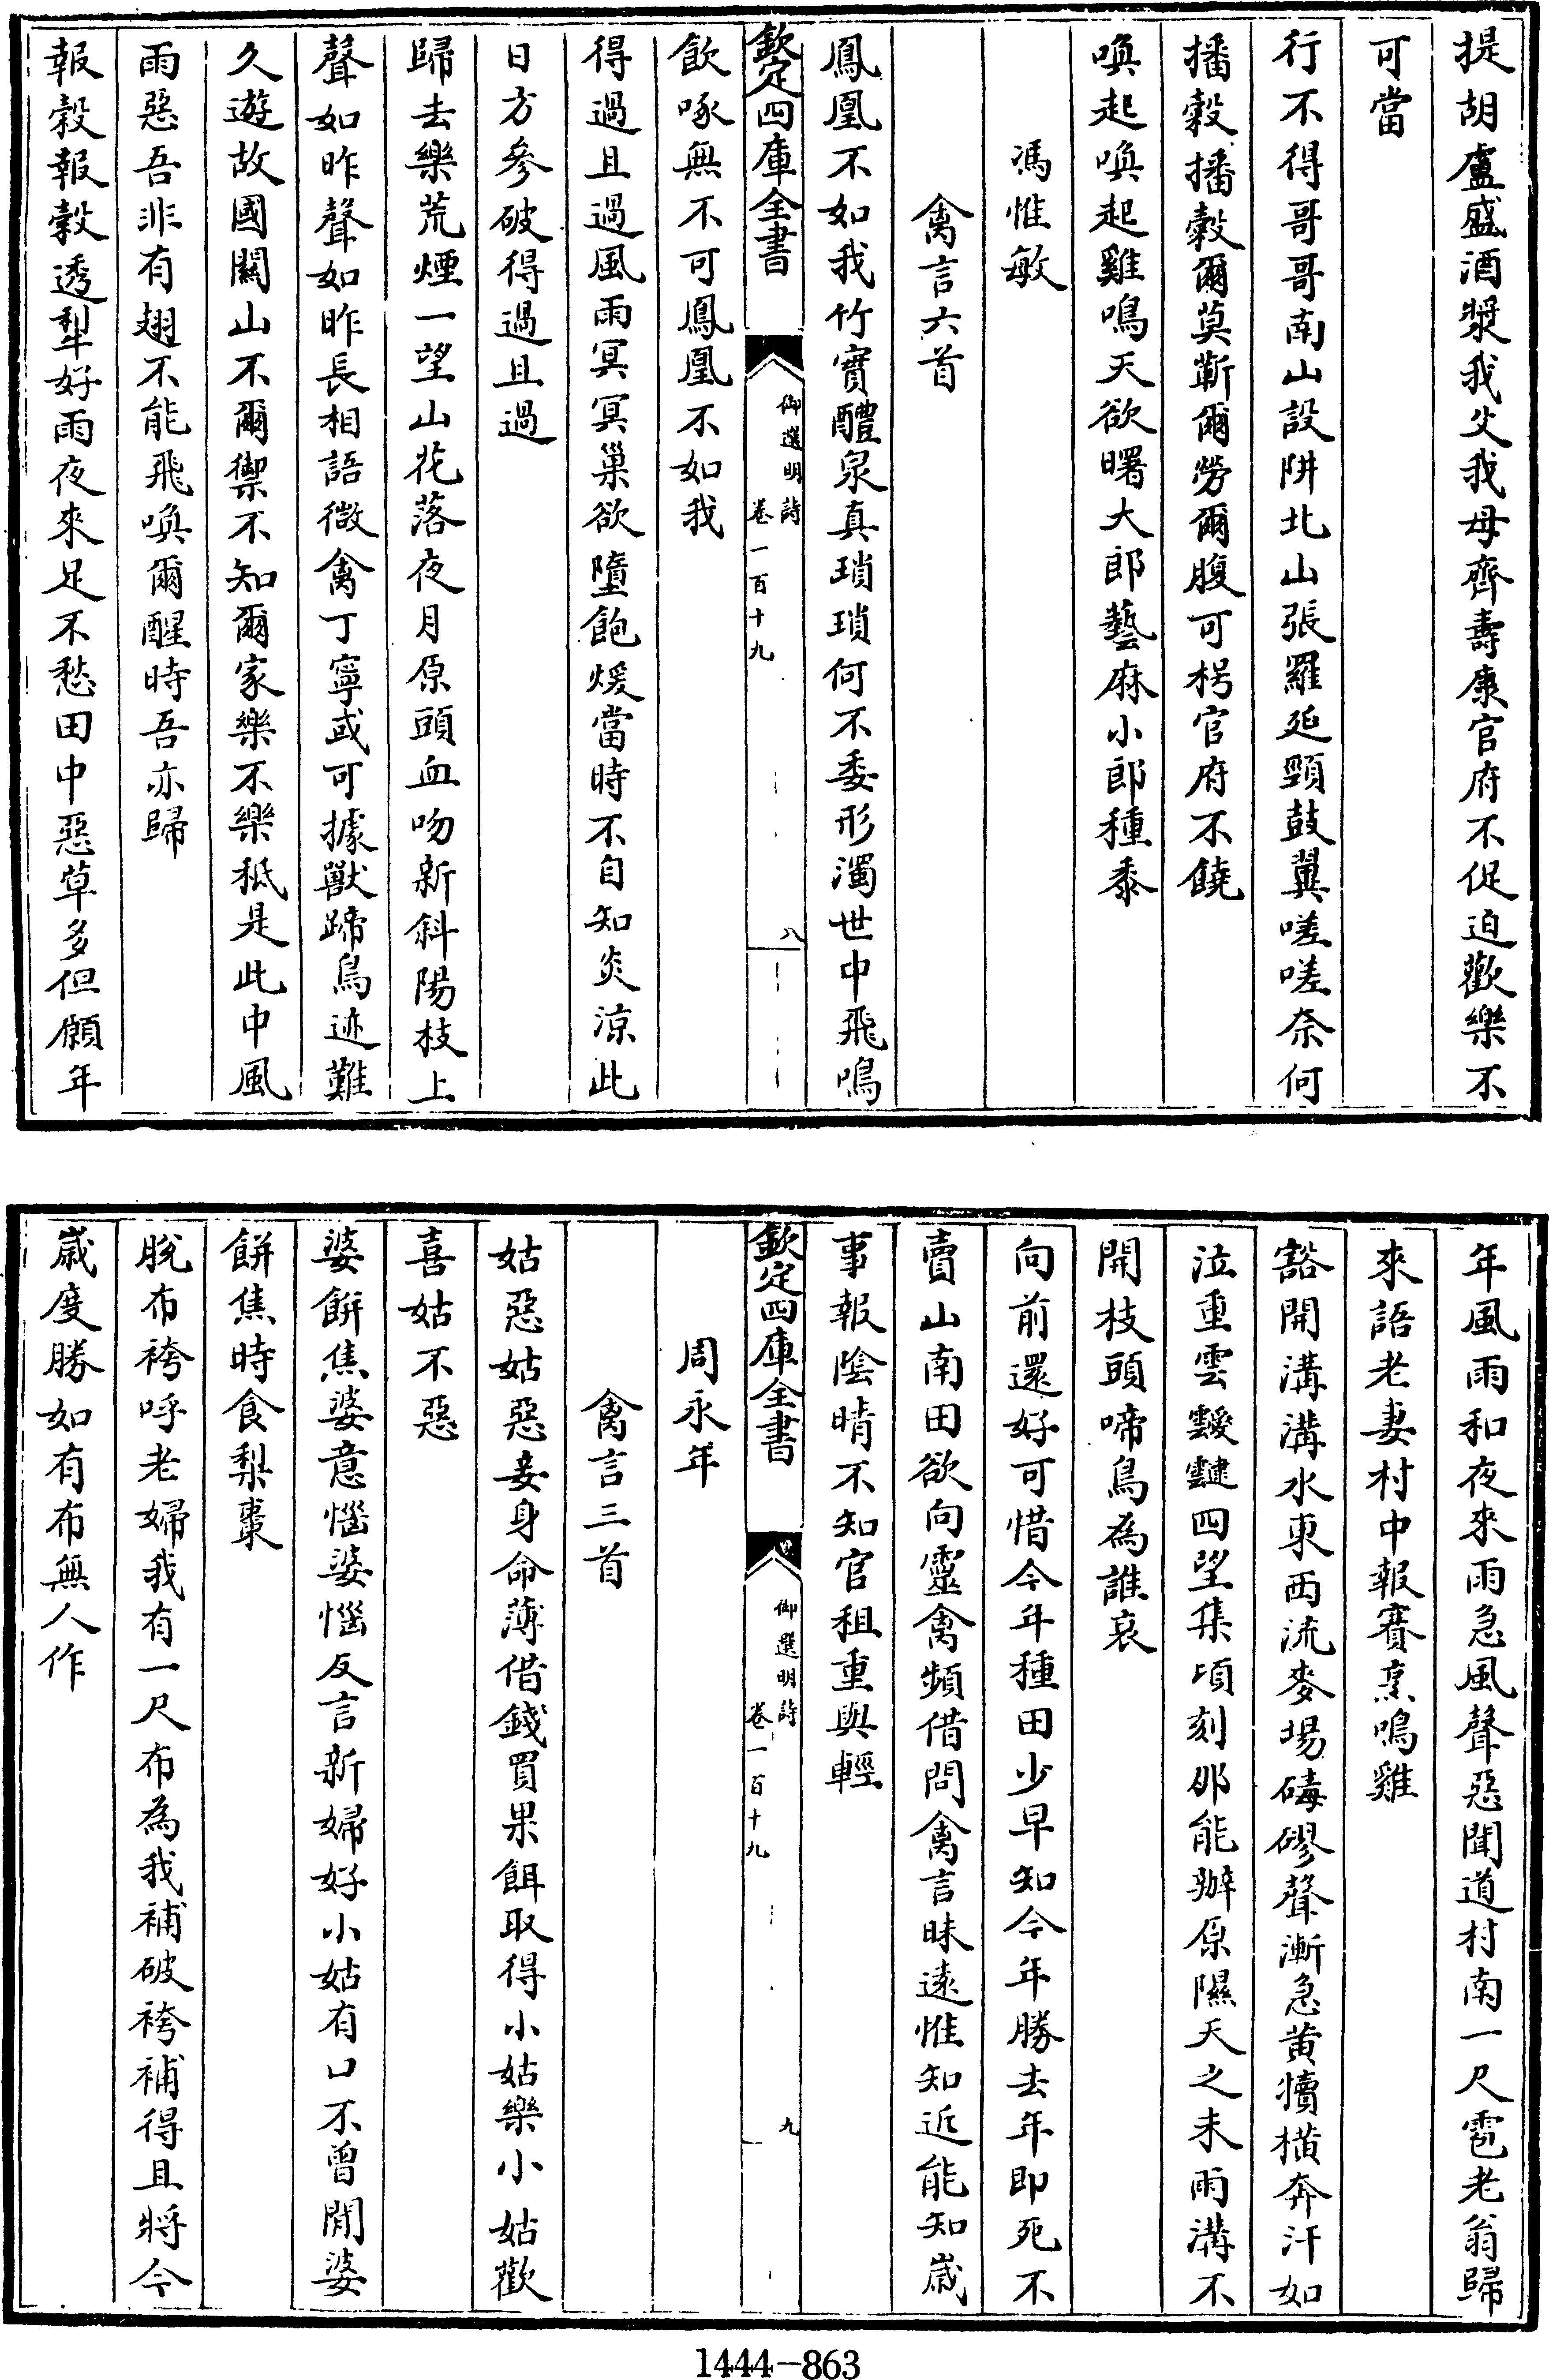 提胡盧盛酒漿我父我母齊壽康官府不促迫歡樂不
可當
行不得哥哥南山設阱北山張羅延頸鼓翼嗟嗟奈何
播穀播穀爾莫靳爾勞爾腹可枵官府不饒
喚起喚起雞鳴天欲曙大郎藝麻小郎種黍
馮惟敏
禽言六首
鳳凰不如我竹實醴泉真瑣瑣何不委形濁世中飛鳴
欽定四庫全書
御選明詩
卷一百十九
八
飲啄無不可鳳凰不如我
得過且過風雨冥冥巢欲墮飽煖當時不自知炎涼此
日方參破得過且過
歸去樂荒煙一望山花落夜月原頭血吻新斜陽枝上
聲如昨聲如昨長相語微禽丁寧或可據獸蹄鳥迹難
久遊故國關山不爾禦不知爾家樂不樂秪是此中風
雨惡吾非有翅不能飛喚爾醒時吾亦歸
報穀報穀透犁好雨夜來足不愁田中惡草多但願年
年風雨和夜來雨急風聲惡聞道村南一尺雹老翁歸
來語老妻村中報賽烹鳴雞
豁開溝溝水東西流麥場磚磟聲漸急黃犢橫奔汗如
泣重雲靉靆四望集頃刻那能辦原隰天之未雨溝不
開枝頭啼鳥為誰哀
向前還好可惜今年種田少早知今年勝去年即死不
賣山南田欲向靈禽頻借問禽言昧遠惟知近能知歲
事報陰晴不知官租重與輕
欽定四庫全書
御選明詩
卷一百十九
九
周永年
禽言三首
姑惡姑惡妾身命薄借錢買果餌取得小姑樂小姑歡
喜姑不惡
婆餅焦婆意惱婆惱反言新婦好小姑有口不曾閒婆
餅焦時食梨棗
脫布袴呼老婦我有一尺布為我補破袴補得且將今
歲度勝如有布無人作
1444-863